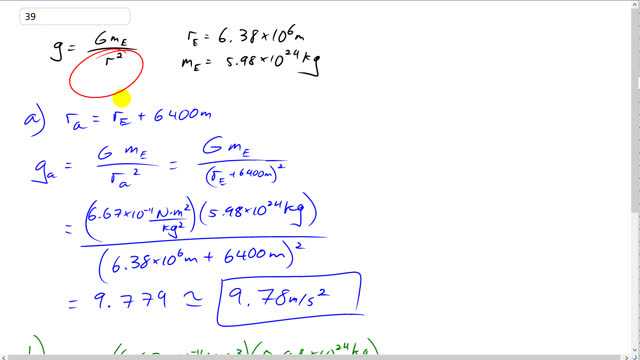 39
g = G m_E / r²   r_E = 6.38 × 10⁶ m
m_E = 5.98 × 10²⁴ kg
a) r_a = r_E + 6400 m
g_a = G m_E / r_a² = G m_E / (r_E + 6400m)²
= (6.67 × 10⁻¹¹ N·m²/kg²) (5.98 × 10²⁴ kg) / (6.38 × 10⁶ m + 6400 m)²
= 9.779 ≃ 9.78 m/s²